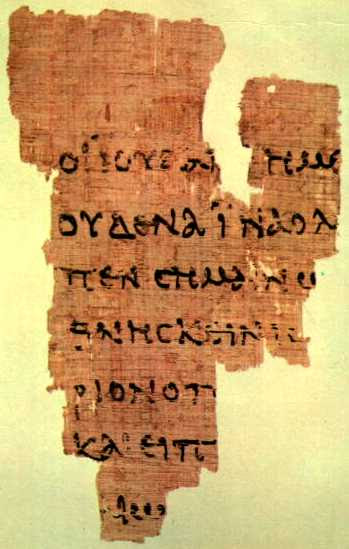 ΟΙΙΟΥΔΑΙ ΗΜΕ
ΟΥΔΕΝΑΪΝΑΟΛ
ΠΕΝCΗΜΑΙΝΩ
ΘΝΗCΚΕΙΝΙ
ΡΙΟΝΟΠ
ΚΑΙΕΙΠ